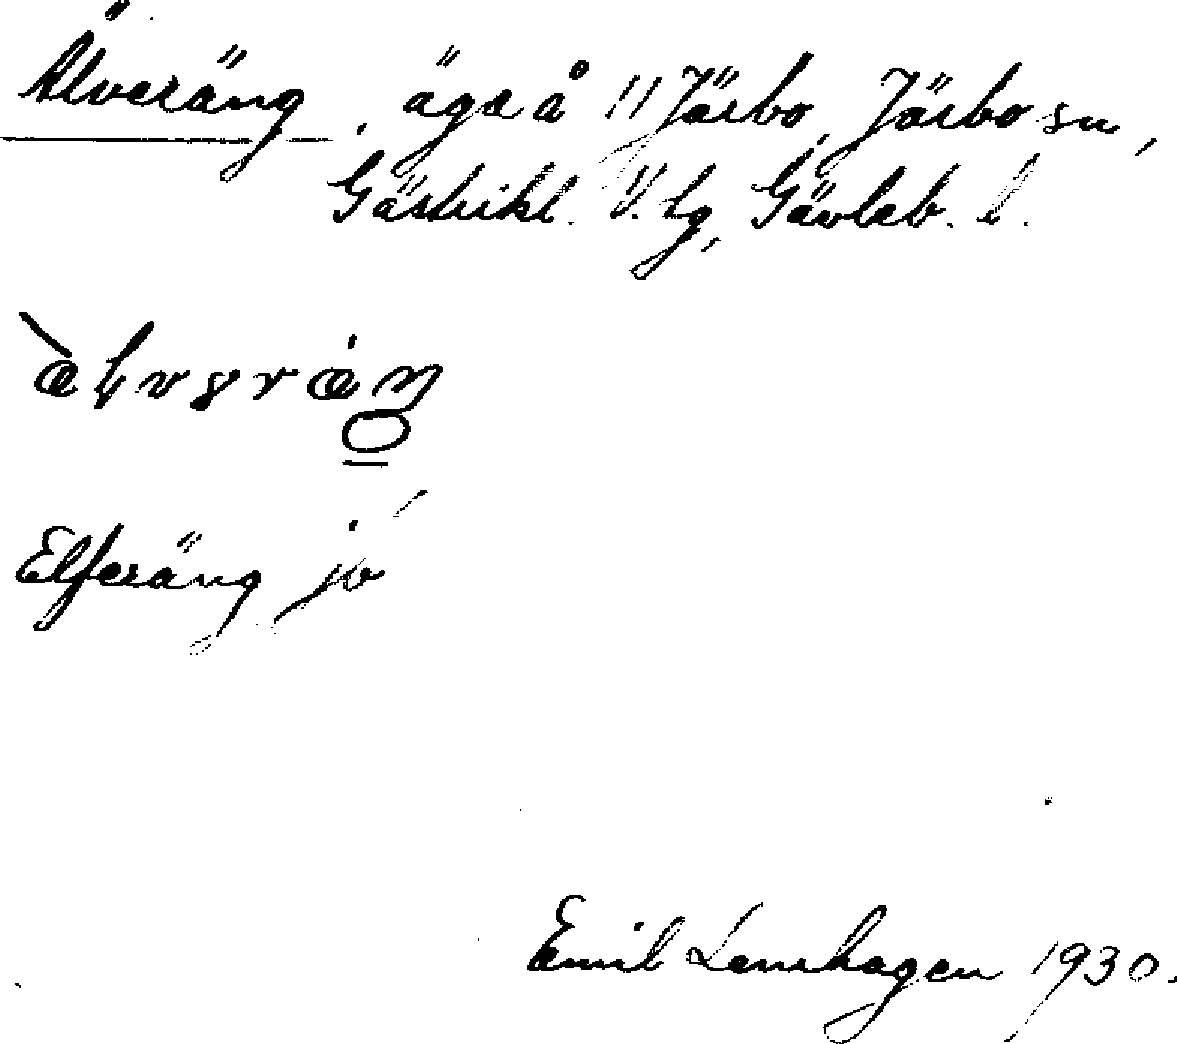 Älveräng, äga å 11 Järbo, Järbo sn,
Gästrikl. V. tg, Gävleb. l.
Elferäng jo
Emil Lenhagen 1930.